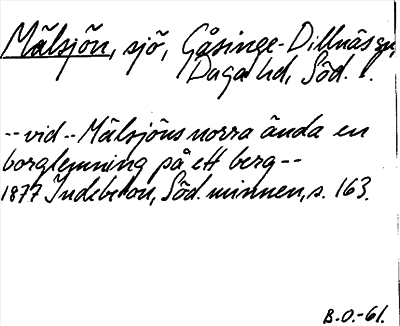 Mälsjön, sjö, Gåsinge-Dillnäs sn,
Daga hd, Söd.
--vid--Mälsjöns norra ända en
borglemning på ett berg--
1877 Indebetou, Söd. minnen, s. 163.
B.O.-61.